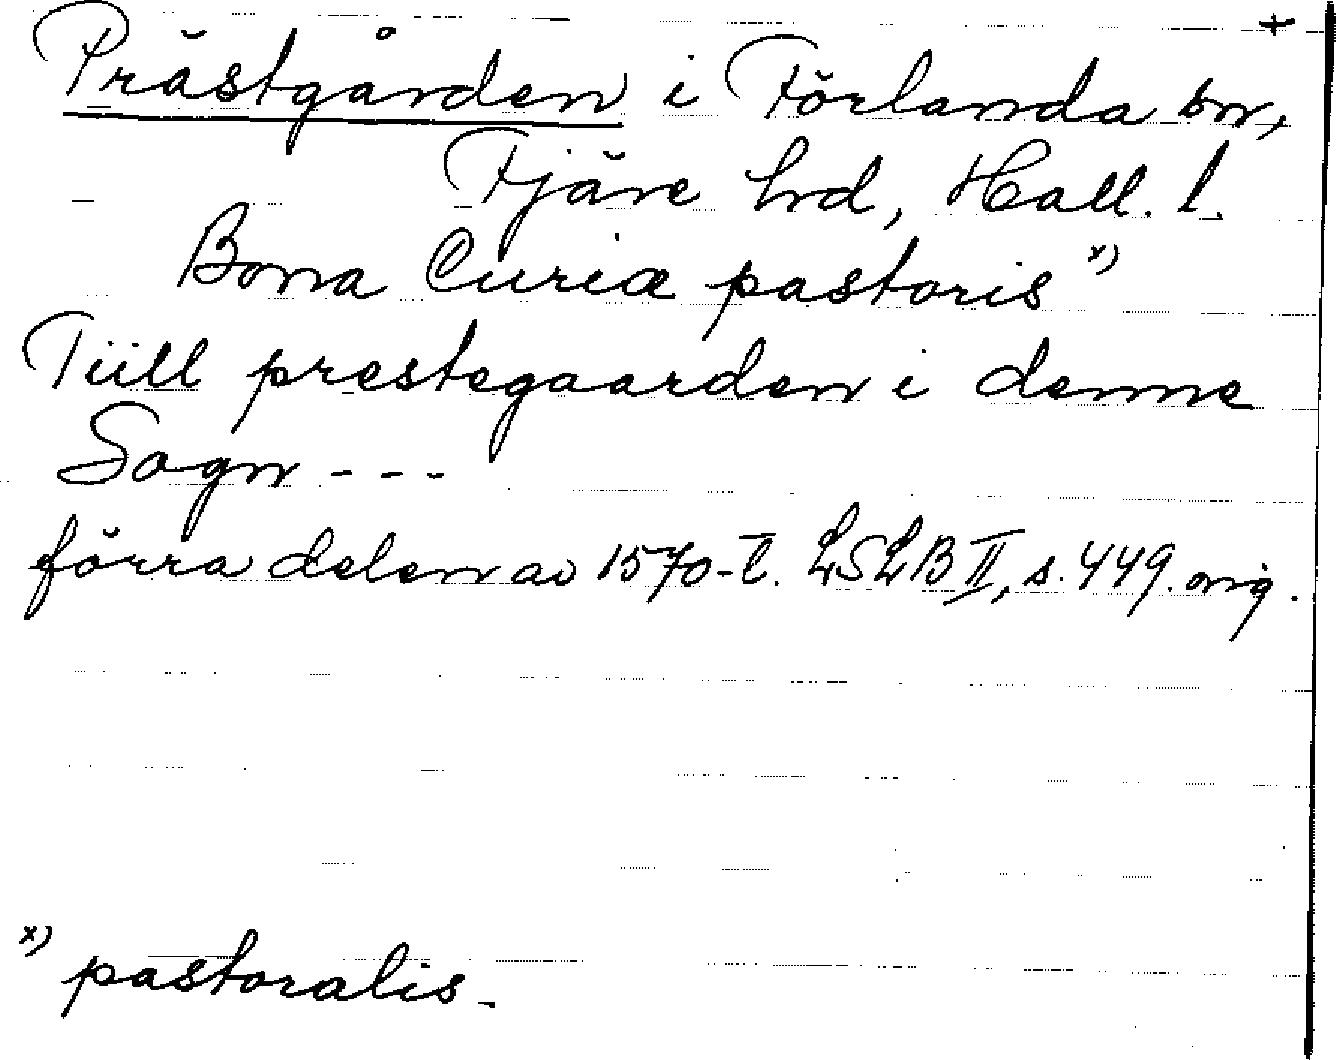 +
Prästgården i Förlanda sn,
Fjäre hrd, Hall. l.
Bona Curiæ pastoris x)
Tiill prestegaarden i denne
Sogn - - -
förra delen av 1570-t. LSLB II, s. 449. orig.
x) pastoralis.